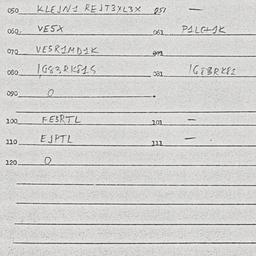 050 KLEJN1 REJT3YL3X 051 —
060 VE5X 061 P1LC11K
070 VE5R1MD1K 071
080 1G83RK81S 081 1G8BRK81
090 0
100 FE5RTL 101 —
110 EJPTL 111 —
120 0